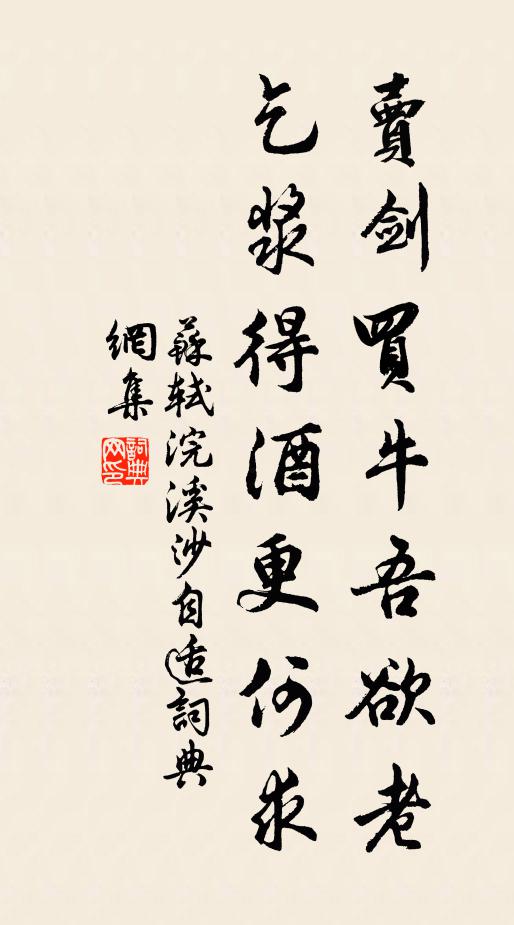 賣劍買牛吾欲老
乞漿得酒更何求
蘇軾浣溪沙自适詞典
網集
詞典網印